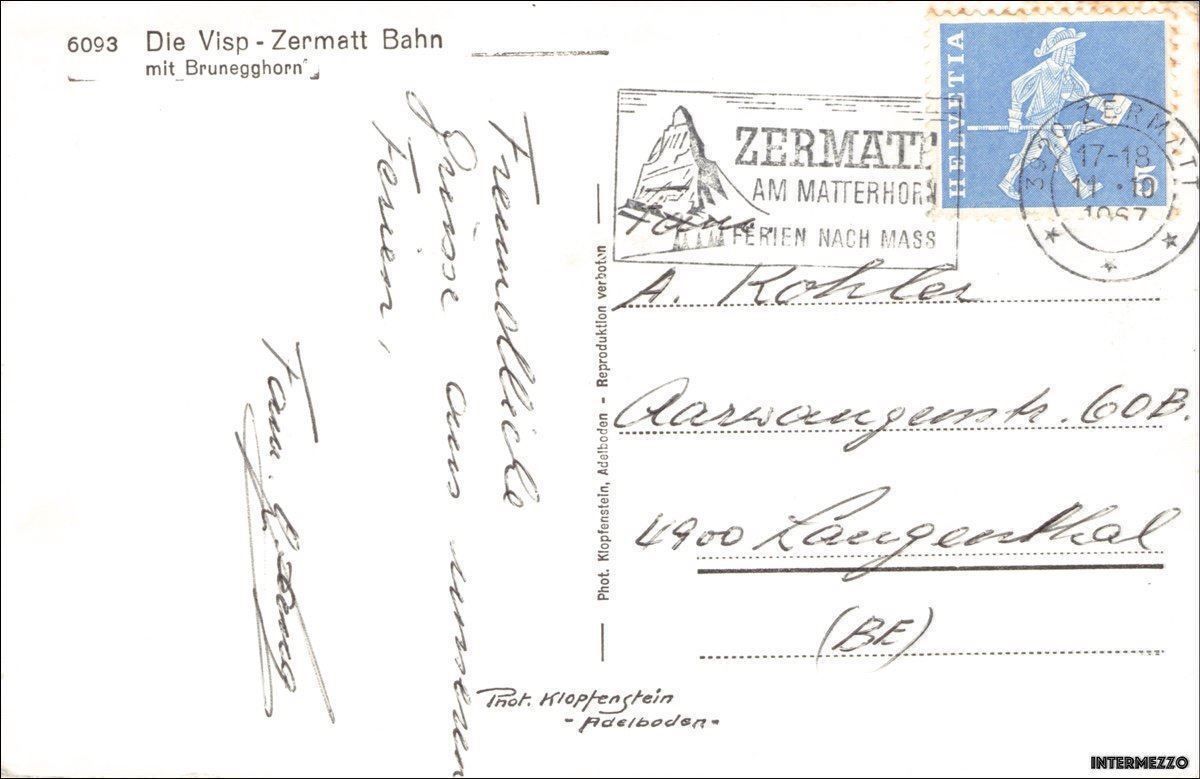 6093 Die Visp - Zermatt Bahn
mit Brunegghorn
HELVETIA
5
3920 ZERMATT
17-18
11.·10
1967
ZERMATT
AM MATTERHORN
FERIEN NACH MASS
Freundliche
Grüsse aus unseren
Ferien,
Fam.
Phot. Klopfenstein, Adelboden - Reproduktion verboten
Fam.
A. Kohler
Aarwangenstr. 60B.
4900 Langenthal
(BE)
Phot. Klopfenstein
- Adelboden -
INTERMEZZO